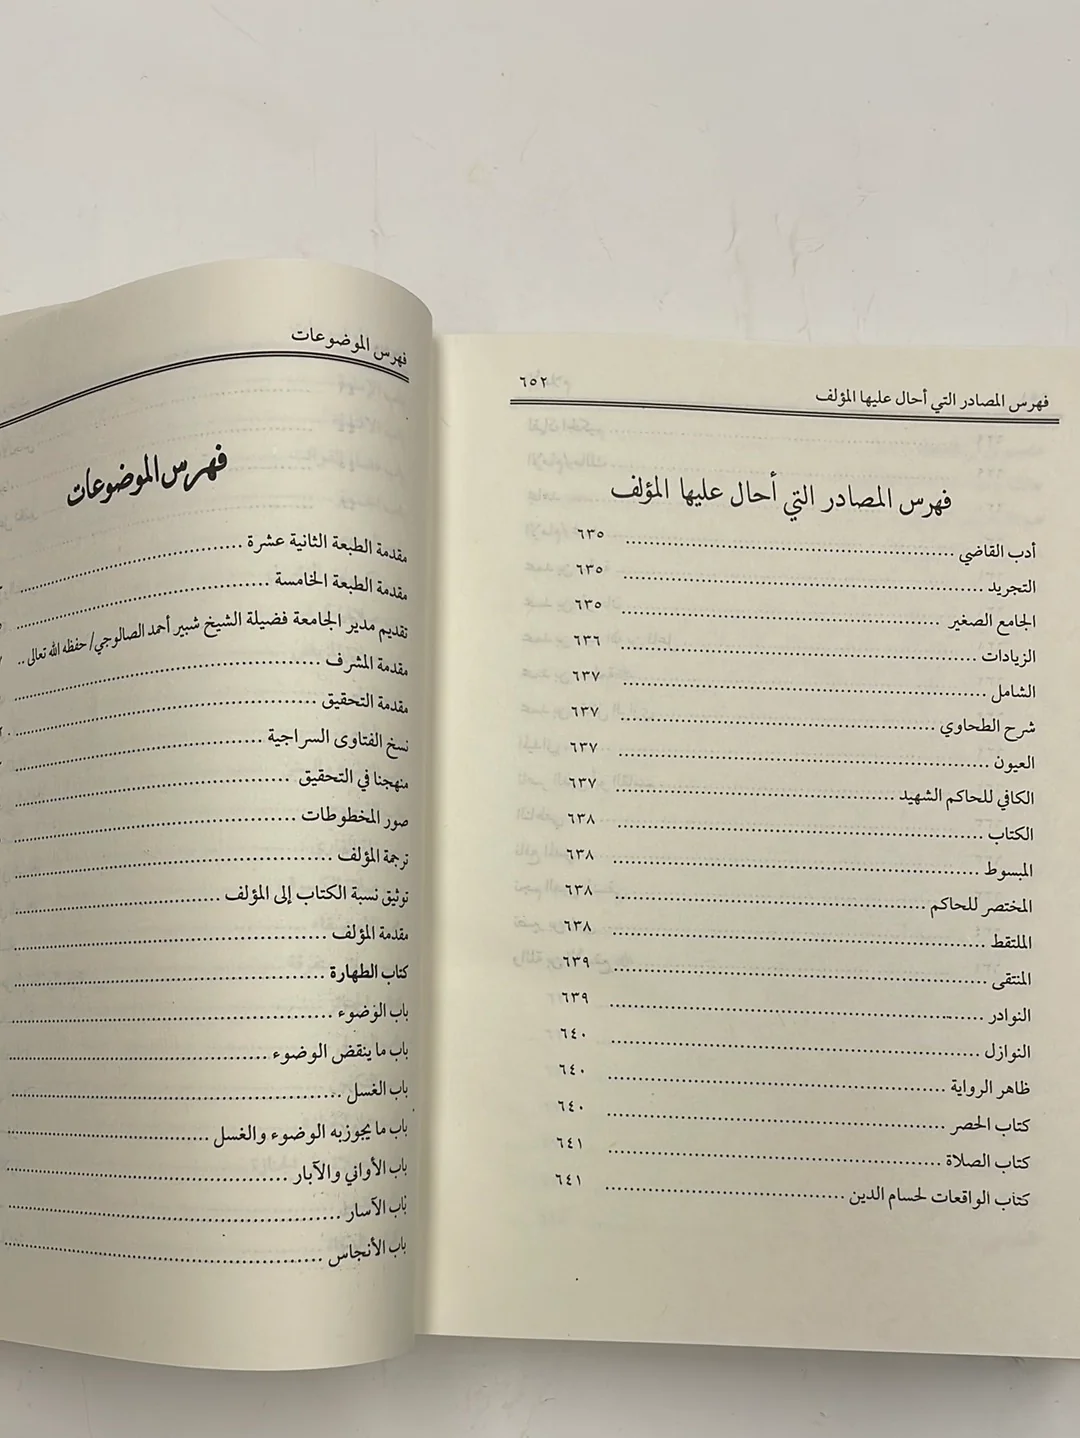 فهرس المصادر التي أحال عليها المؤلف ٦٥٢
فهرس المصادر التي أحال عليها المؤلف
أدب القاضي ........ ٦٣٥
التجريد ........ ٦٣٥
الجامع الصغير ........ ٦٣٥
الزيادات ........ ٦٣٦
الشامل ........ ٦٣٧
شرح الطحاوي ........ ٦٣٧
العيون ........ ٦٣٧
الكافي للحاكم الشهيد ........ ٦٣٧
الكتاب ........ ٦٣٨
المبسوط ........ ٦٣٨
المختصر للحاكم ........ ٦٣٨
الملتقط ........ ٦٣٨
المنتقى ........ ٦٣٩
النوادر ........ ٦٣٩
النوازل ........ ٦٤٠
ظاهر الرواية ........ ٦٤٠
كتاب الحصر ........ ٦٤٠
كتاب الصلاة ........ ٦٤١
كتاب الواقعات لحسام الدين ........ ٦٤١
فهرس الموضوعات
فهرس الموضوعات
مقدمة الطبعة الثانية عشرة ........
مقدمة الطبعة الخامسة ........
تقديم مدير الجامعة فضيلة الشيخ شبير أحمد الصالوجي/ حفظه الله تعالى ..
مقدمة المشرف ........
مقدمة التحقيق ........
نسخ الفتاوى السراجية ........
منهجنا في التحقيق ........
صور المخطوطات ........
ترجمة المؤلف ........
توثيق نسبة الكتاب إلى المؤلف ........
مقدمة المؤلف ........
كتاب الطهارة ........
باب الوضوء ........
باب ما ينقض الوضوء ........
باب الغسل ........
باب ما يجوز به الوضوء والغسل ........
باب الأواني والآبار ........
باب الآسار ........
باب الأنجاس ........